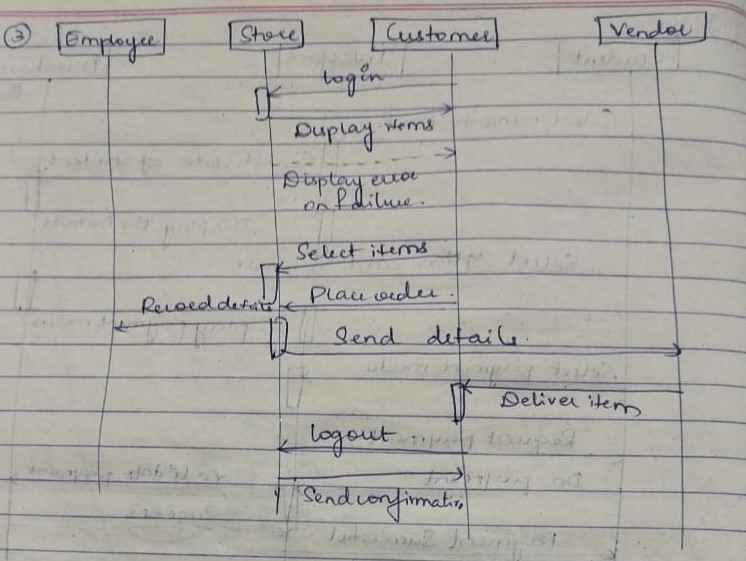 ③ Employee Store Customer Vendor
Login
Display items
Display error
on failure.
Select items
Place order.
Record details
Send details.
Deliver item
logout
Send confirmation